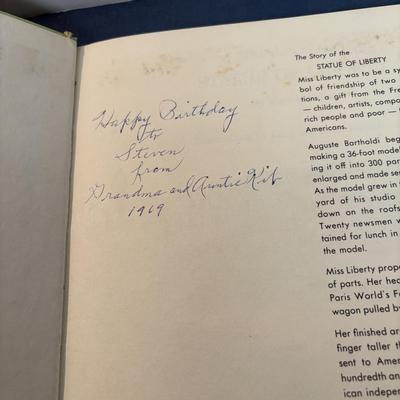 Happy Birthday
to
Steven
from
Grandma and Auntie Kib
1969
The Story of the
STATUE OF LIBERTY
Miss Liberty was to be a sy
bol of friendship of two
tions, a gift from the Fre
— children, artists, compo
rich people and poor — t
Americans.
Auguste Bartholdi beg
making a 36-foot model
ing it off into 300 par
enlarged and made se
As the model grew in
yard of his studio
down on the roofs
Twenty newsmen w
tained for lunch in
the model.
Miss Liberty prope
of parts. Her hea
Paris World's Fa
wagon pulled by
Her finished ar
finger taller th
sent to Amer
hundredth an
ican indepen